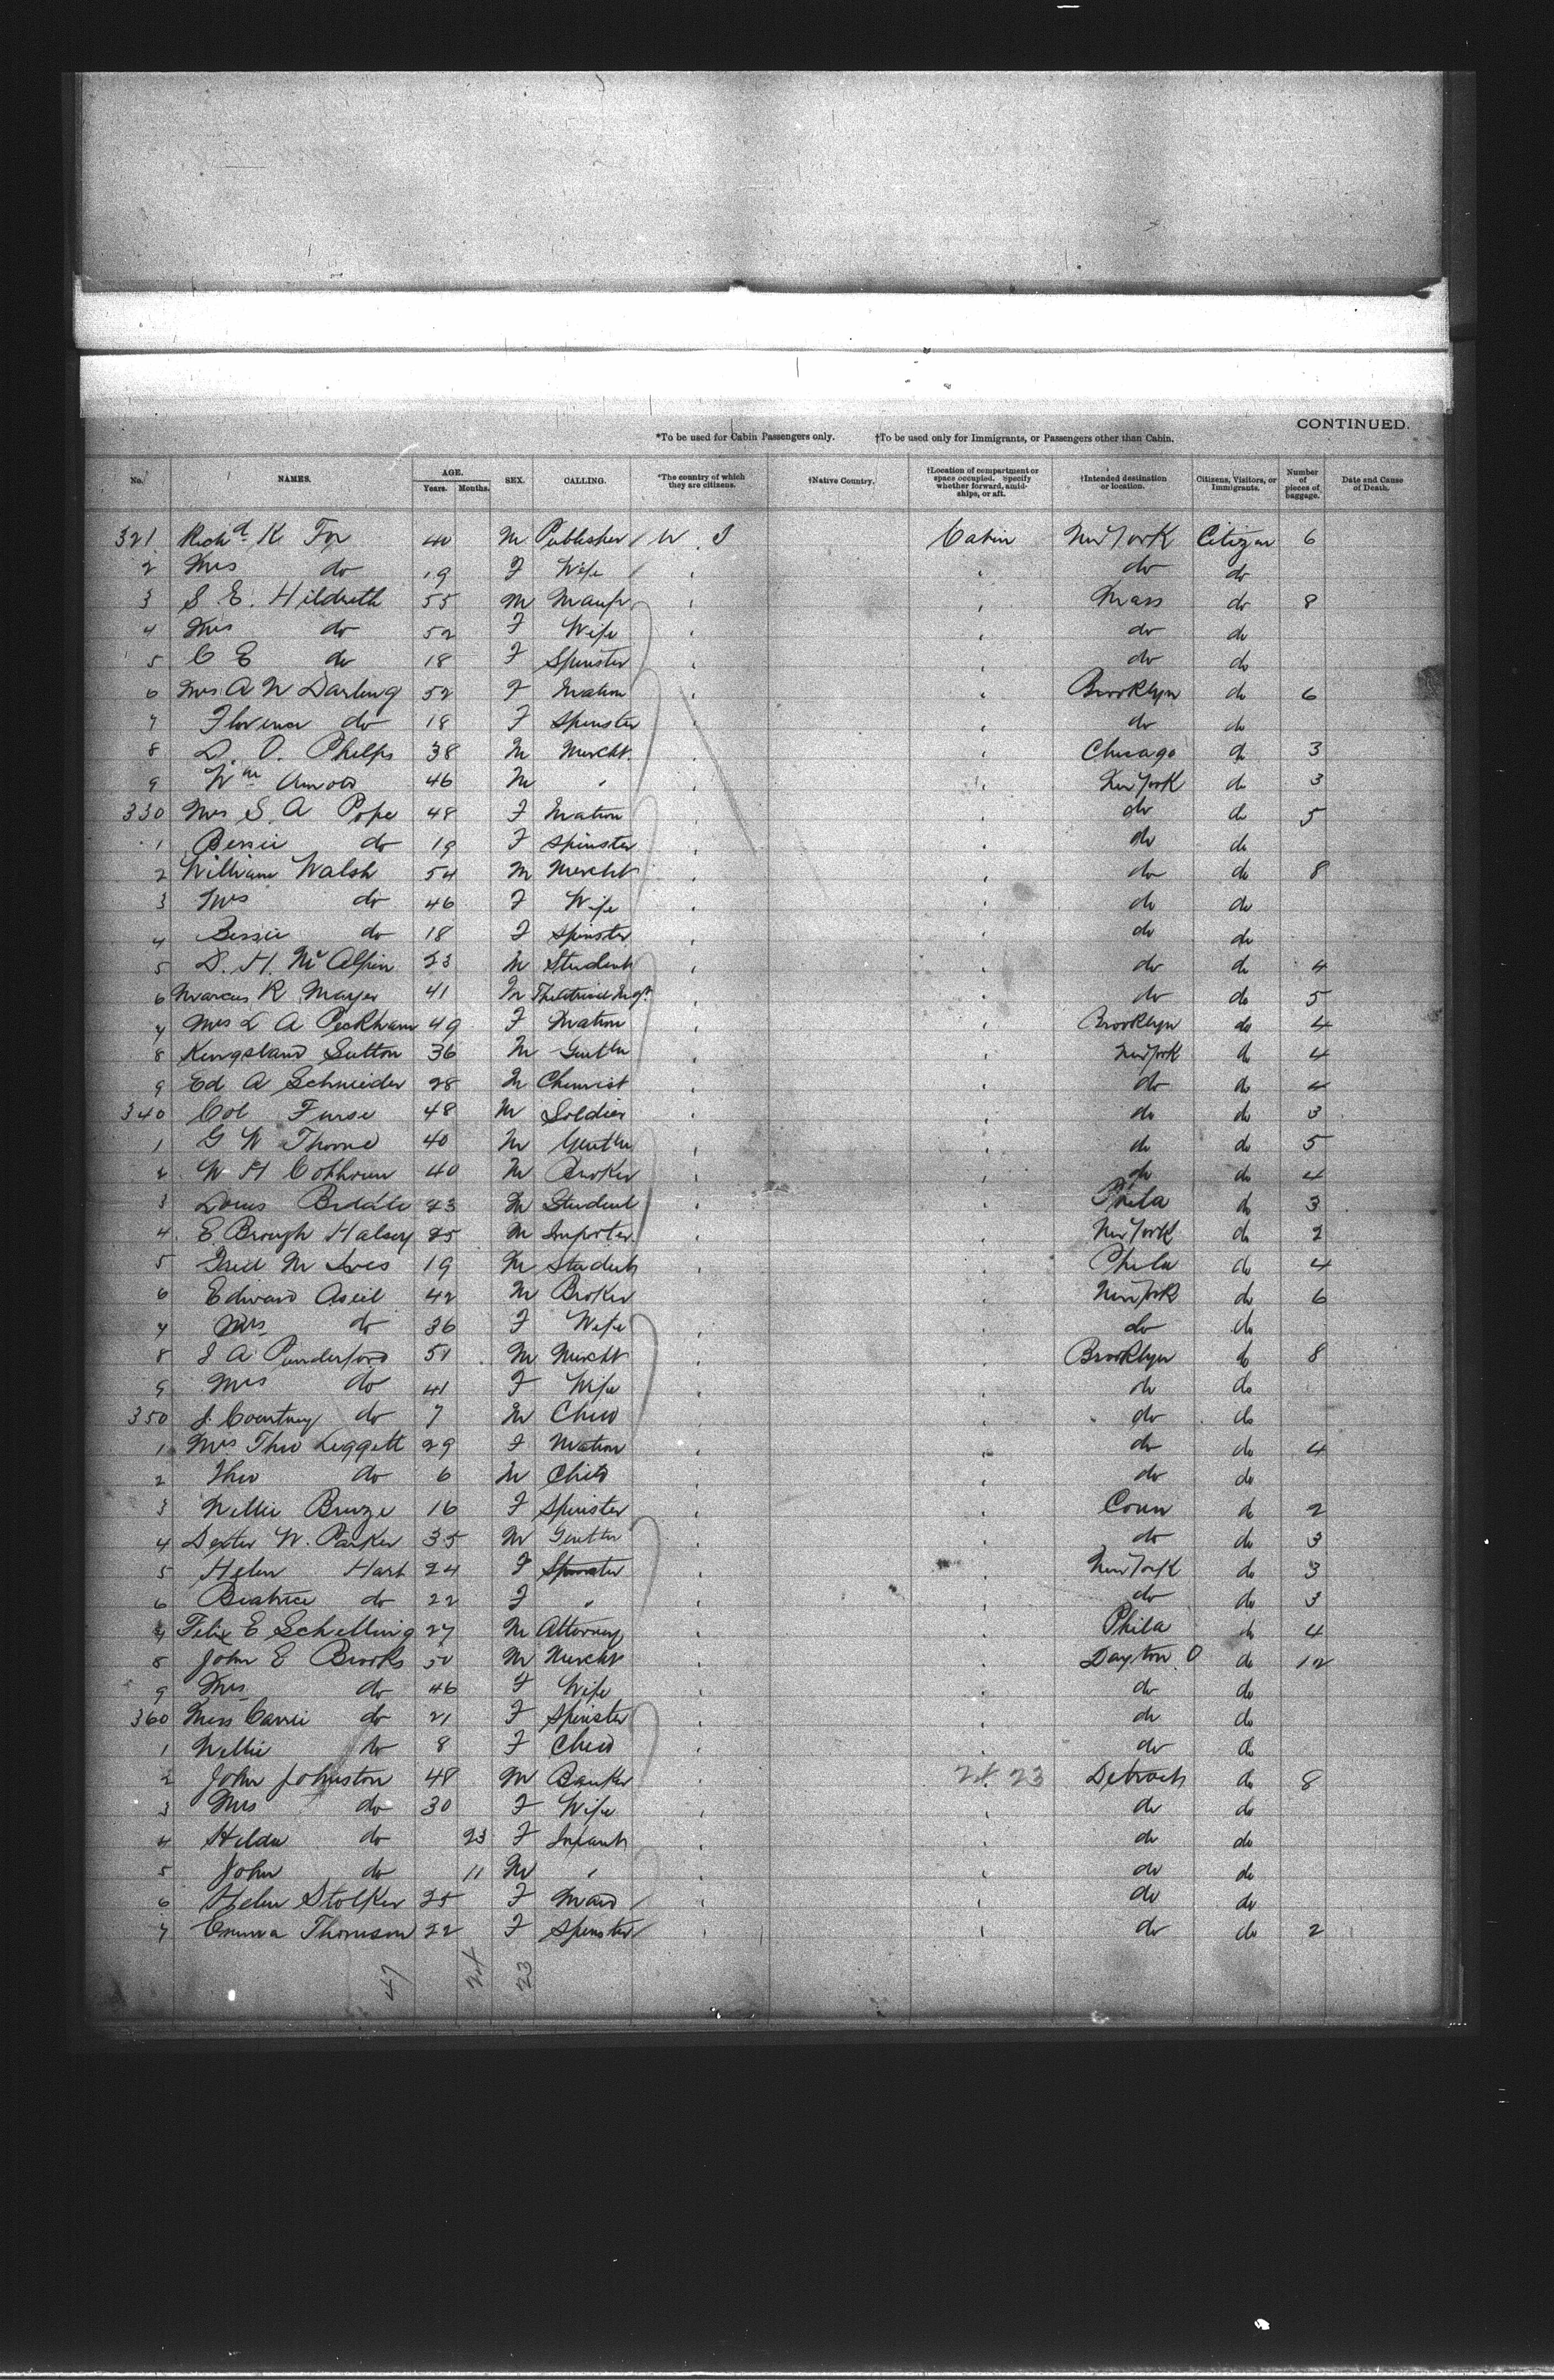 CONTINUED.
*To be used for Cabin Passengers only. †To be used only for Immigrants, or Passengers other than Cabin.
No. NAMES. AGE. Years. Months. SEX. CALLING. *The country of which they are citizens. †Native Country. †Location of compartment or space occupied. Specify whether forward, amidships, or aft. †Intended destination or location. Citizens, Visitors, or Immigrants. Number of pieces of baggage. Date and Cause of Death.
321 Richd K Fox 40 M Publisher Cabin New York Citizen 6
2 Mrs do 19 F Wife do do
3 S E. Hildreth 55 M Manfr Mass do 8
4 Mrs do 52 F Wife do do
5 C E do 18 F Spinster do do
6 Mrs A N Darling 52 F Matron Brooklyn do 6
7 Florence do 18 F Spinster do do
8 D. O. Phelps 38 M Mercht. Chicago do 3
9 Wm Arnold 46 M " New York do 3
330 Mrs S. A Pope 48 F Matron do do 5
1 Bessie do 19 F Spinster do do
2 William Walsh 54 M Mercht do do 8
3 Mrs do 46 F Wife do do
4 Bessie do 18 F Spinster do do
5 D. H. McAlpin 23 M Student do do 4
6 Marcus R Mayer 41 M Theatrical Mgr. do do 5
7 Mrs L A Peckham 49 F Matron Brooklyn do 4
8 Kingsland Sutton 36 M Gentn New York do 4
9 Ed A Schneider 28 M Chemist do do 4
340 Col Furse 48 M Soldier do do 3
1 G W Thorne 40 M Gentn do do 5
2 W H 40 M Broker do do 4
3 Louis 23 M Student Phila do 3
4 E Brough Halsey 25 M Importer New York do 2
5 Fred M Ives 19 M Student Phila do 4
6 Edward Asiel 42 M Broker New York do 6
7 Mrs do 36 F Wife do do
8 J A Punderford 51 M Mercht Brooklyn do 8
9 Mrs do 41 F Wife do do
350 J. Courtney do 7 M Child do do
1 Mrs Theo Leggett 29 F Matron do do 4
2 Theo do 6 M Child do do
3 Nellie 16 F Spinster Conn do 2
4 Dexter W. Parker 35 M Gentn do do 3
5 Helen Hart 24 F Spinster New York do 3
6 Beatrice do 22 F " do do 3
7 Felix E Schelling 27 M Attorney Phila do 4
8 John E Brooks 50 M Mercht Dayton O do 12
9 Mrs do 46 F Wife do do
360 Miss Carrie do 21 F Spinster do do
1 Nellie do 8 F Child do do
2 John Johnston 48 M Banker 24 23 Detroit do 8
3 Mrs do 30 F Wife do do
4 Hilda do 23 F Infant do do
5 John do 11 M " do do
6 Helen Stolker 25 F Maid do do
7 Emma Thomson 22 F Spinster do do 2
47 24 23